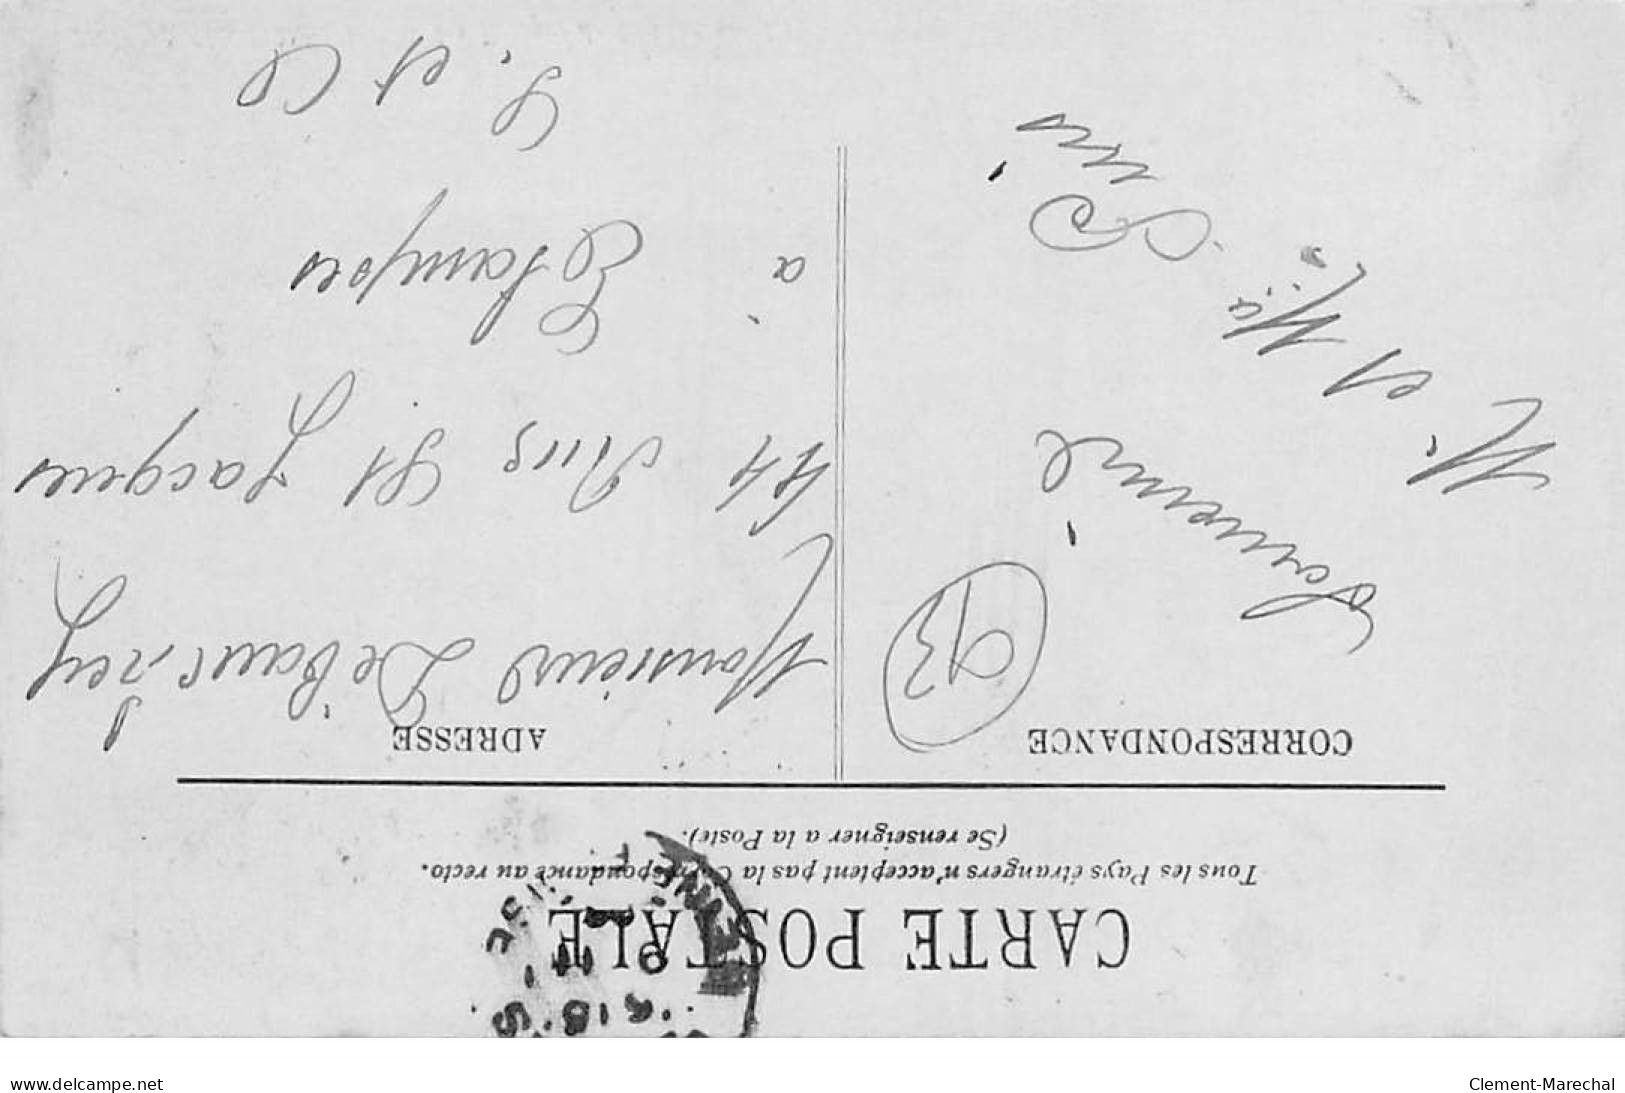 CARTE POSTALE
Tous les Pays étrangers n'acceptent pas la Correspondance au recto.
(Se renseigner a la Poste).
CORRESPONDANCE
93
Souvenir
M. et
ADRESSE
Monsieur
44 Rue St Jacques
à Etampes
S. et O
www.delcampe.net
Clement-Marechal